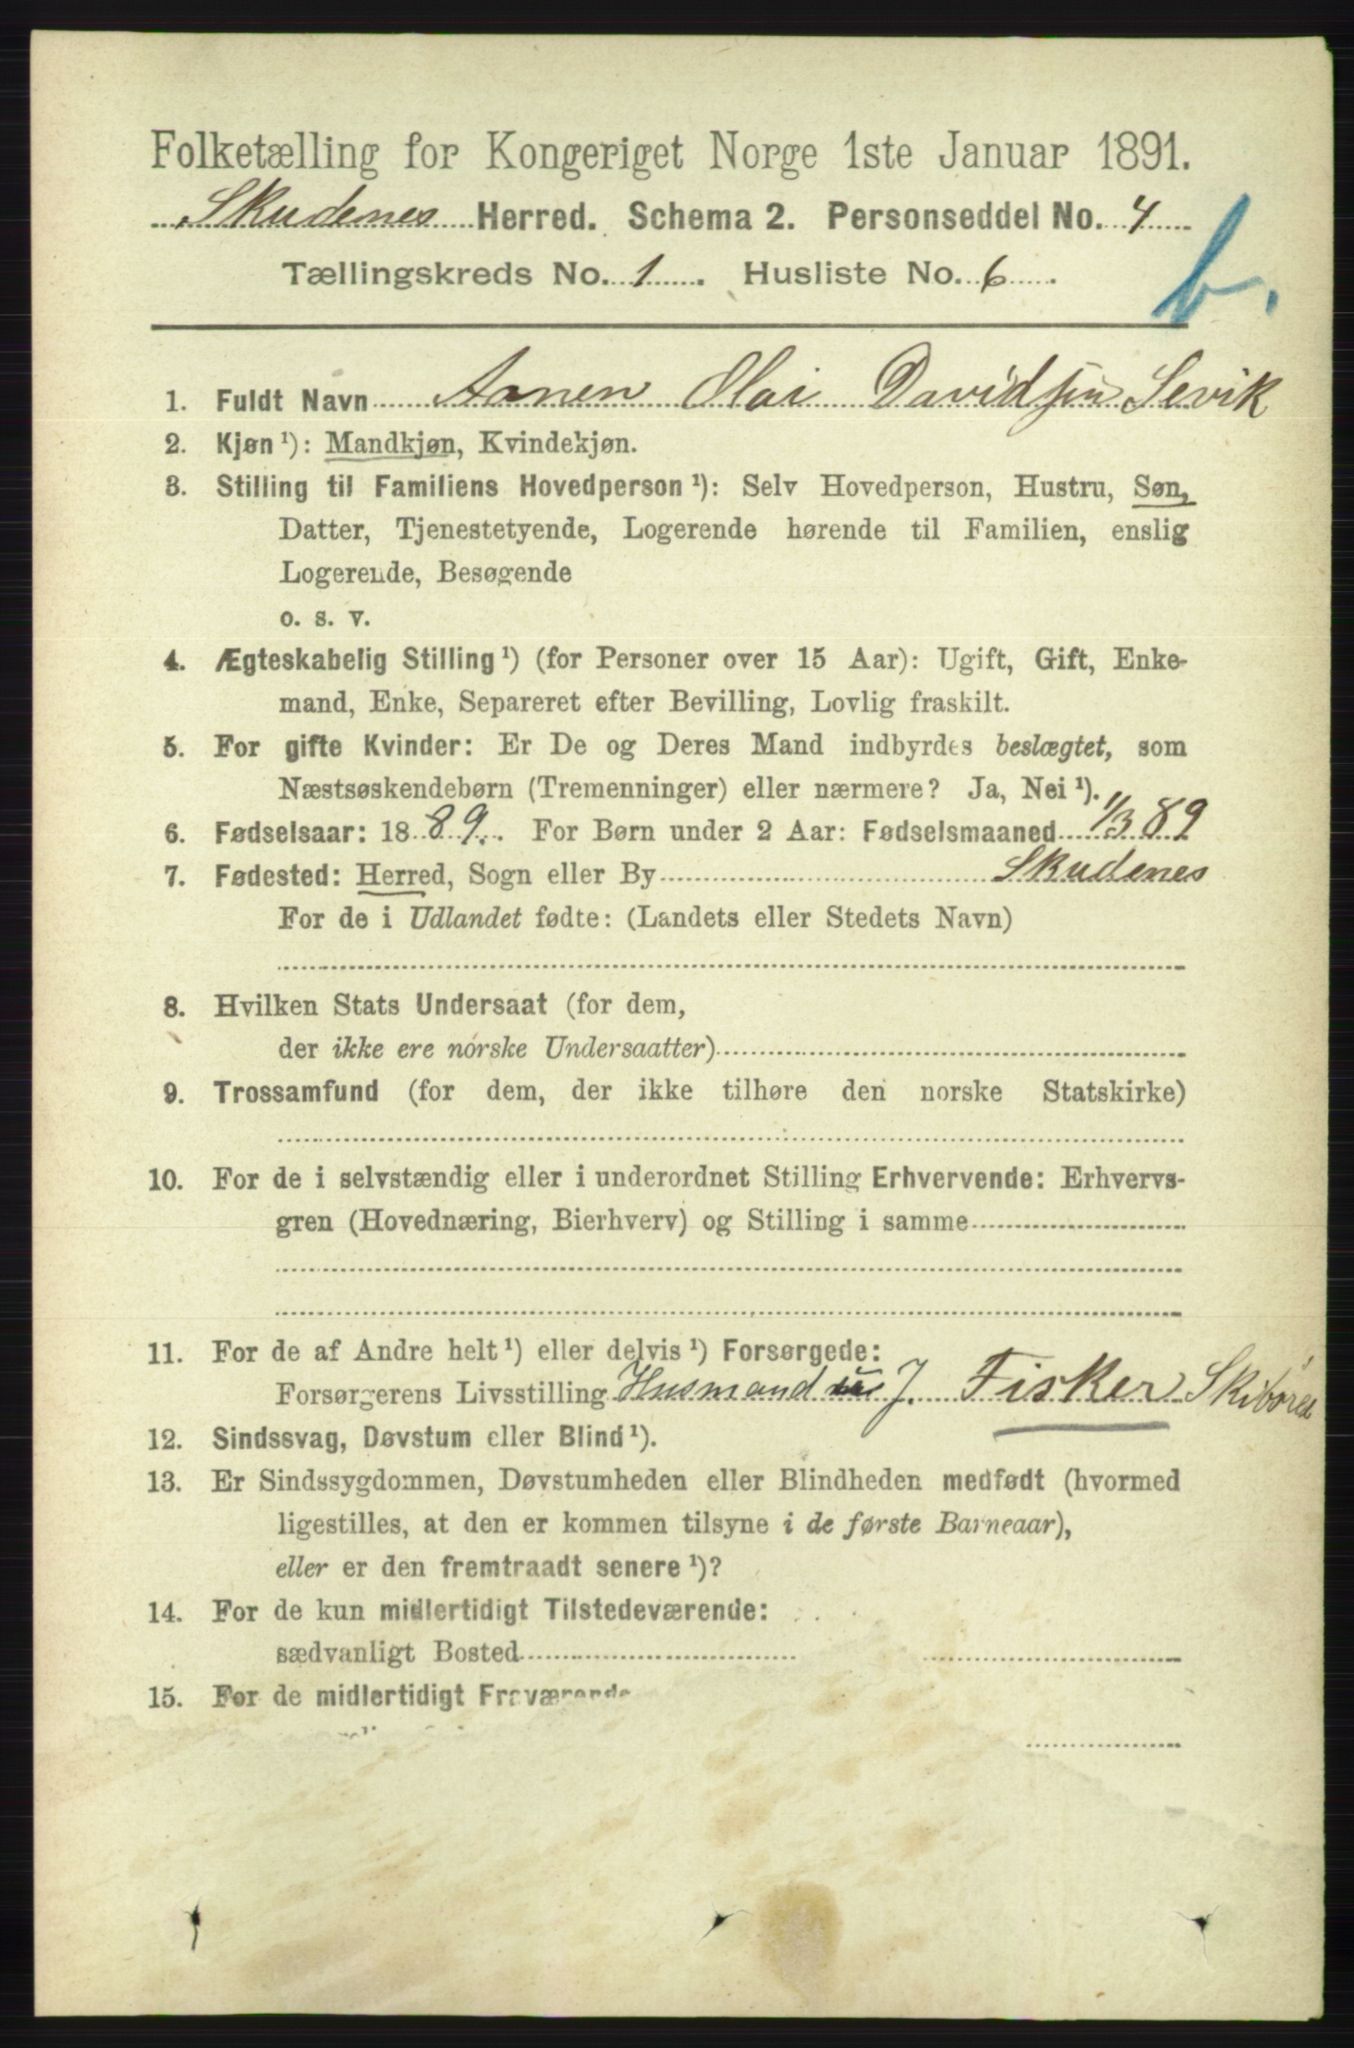 Folketælling for Kongeriget Norge 1ste Januar 1891.
Skudenes Herred. Schema 2. Personseddel No. 4
Tællingskreds No. 1. Husliste No. 6.
b.
1. Fuldt Navn Aanen Olai Davidsen Sevik
2. Kjøn ¹): Mandkjøn, Kvindekjøn.
3. Stilling til Familiens Hovedperson ¹): Selv Hovedperson, Hustru, Søn,
Datter, Tjenestetyende, Logerende hørende til Familien, enslig
Logerende, Besøgende
o. s. v.
4. Ægteskabelig Stilling ¹) (for Personer over 15 Aar): Ugift, Gift, Enke-
mand, Enke, Separeret efter Bevilling, Lovlig fraskilt.
5. For gifte Kvinder: Er De og Deres Mand indbyrdes beslægtet, som
Næstsøskendebørn (Tremenninger) eller nærmere? Ja, Nei ¹).
6. Fødselsaar: 1889. For Børn under 2 Aar: Fødselsmaaned 1/3 89
7. Fødested: Herred, Sogn eller By Skudenes
For de i Udlandet fødte: (Landets eller Stedets Navn)
8. Hvilken Stats Undersaat (for dem,
der ikke ere norske Undersaatter)
9. Trossamfund (for dem, der ikke tilhøre den norske Statskirke)
10. For de i selvstændig eller i underordnet Stilling Erhvervende: Erhvervs-
gren (Hovednæring, Bierhverv) og Stilling i samme
11. For de af Andre helt ¹) eller delvis ¹) Forsørgede:
Forsørgerens Livsstilling Husmand J. Fisker
12. Sindssvag, Døvstum eller Blind ¹).
13. Er Sindssygdommen, Døvstumheden eller Blindheden medfødt (hvormed
ligestilles, at den er kommen tilsyne i de første Barneaar),
eller er den fremtraadt senere ¹)?
14. For de kun midlertidigt Tilstedeværende:
sædvanligt Bosted
15. For de midlertidigt Fraværende